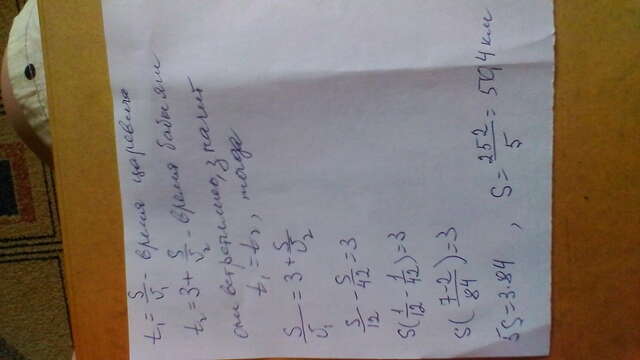 t₁ = S/υ₁ - время царевича
t₂ = 3 + S/υ₂ - время бабы яги
они встретились, значит
t₁ = t₂, тогда
S/υ₁ = 3 + S/υ₂
S/12 - S/42 = 3
S(1/12 - 1/42) = 3
S(7-2/84) = 3
5S = 3·84, S = 252/5 = 50,4 км